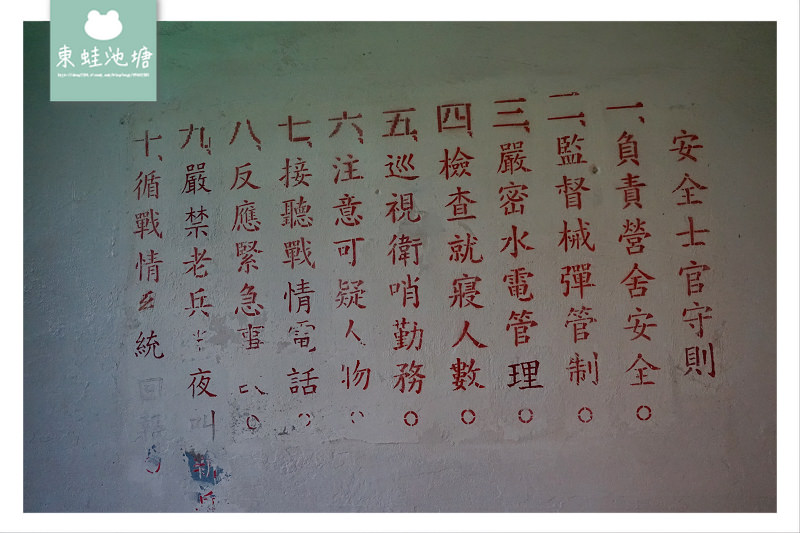 東蛙池塘
安全士官守則
一、負責營舍安全。
二、監督械彈管制。
三、嚴密水電管理。
四、檢查就寢人數。
五、巡視衛哨勤務。
六、注意可疑人物。
七、接聽戰情電話。
八、反應緊急事。
九、嚴禁老兵半夜叫新
十、循戰情系統回報。